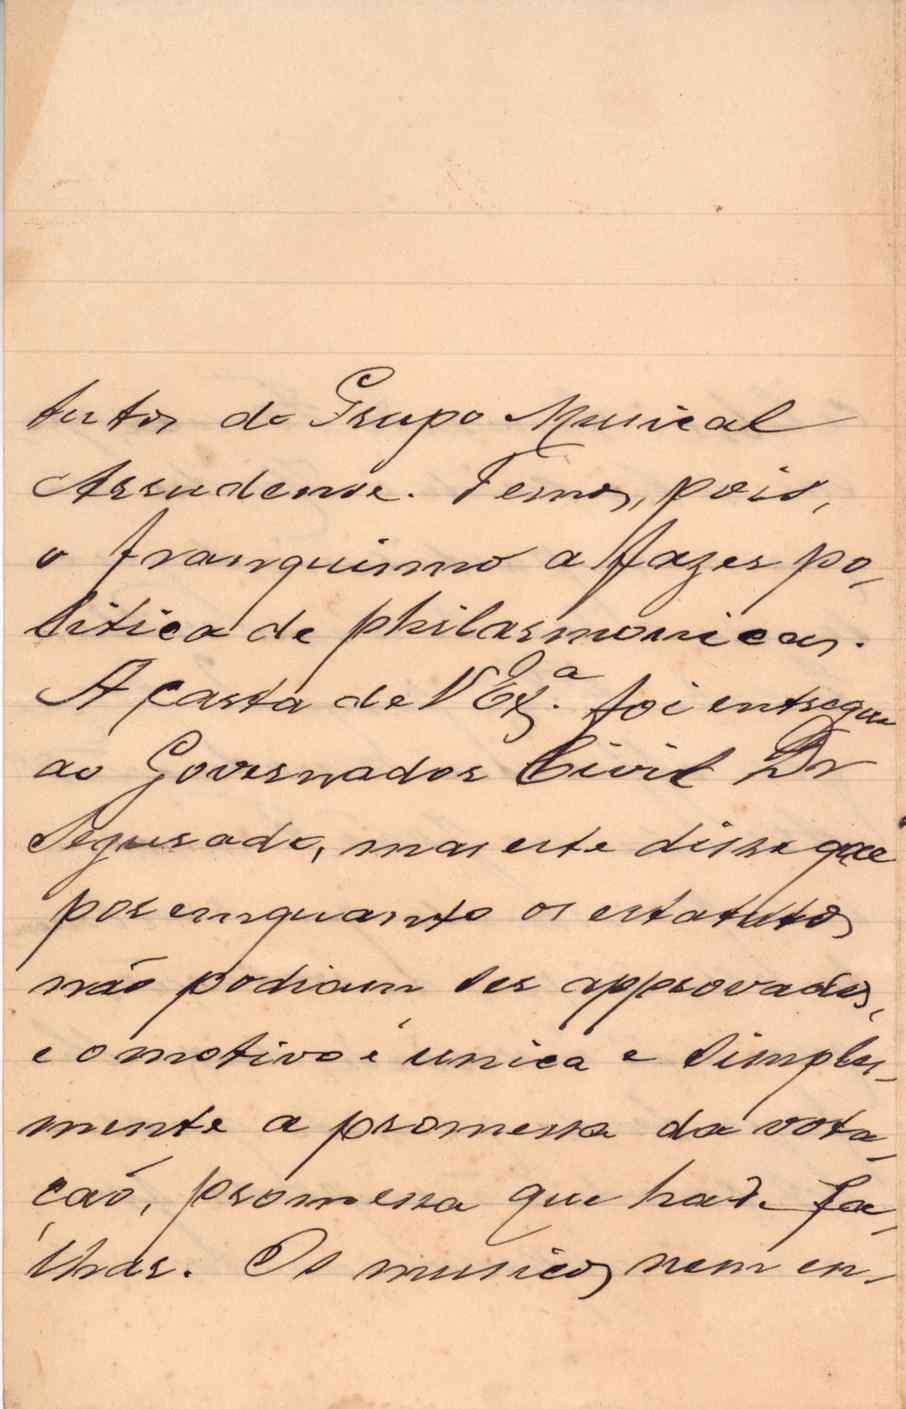 tutos do Grupo Musical
Assudense. Temos, pois,
o franquismo a fazer po-
litica de philarmonicas.
A carta de V Ex.ª foi entregue
ao Governador Civil Dr
Segurado, mas este disse que
por emquanto os estatutos
não podiam ser approvados,
e o motivo é unica e simples-
mente a promessa da vota-
ção, promessa que hade fa-
lhar. Os musicos nem en-